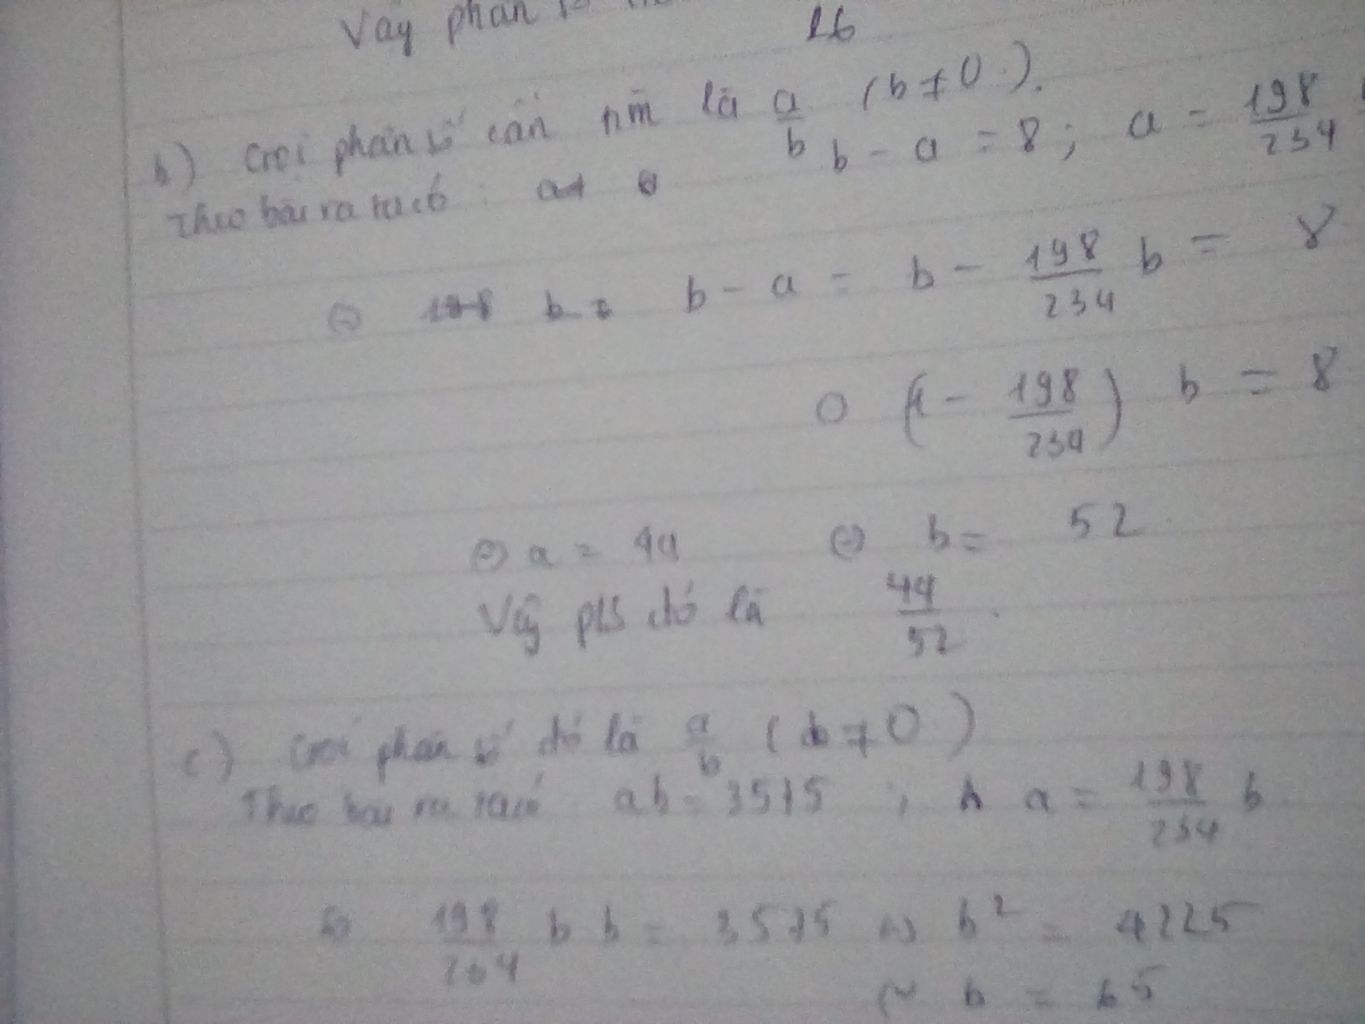 Vậy phân số
26
b) Gọi phân số cần tìm là a/b (b ≠ 0).
Theo bài ra ta có: b - a = 8; a = 198/234
⇔ b - a = b - 198/234 b = 8
⇔ (1 - 198/234) b = 8
⇔ a = 44 ⇔ b = 52
Vậy pls đó là 44/52.
c) Gọi phân số đó là a/b (b ≠ 0)
Theo bài ra ta có ab = 3575; a = 198/234 b
⇔ 198/234 b b = 3575 ⇔ b² = 4225
⇔ b = 65